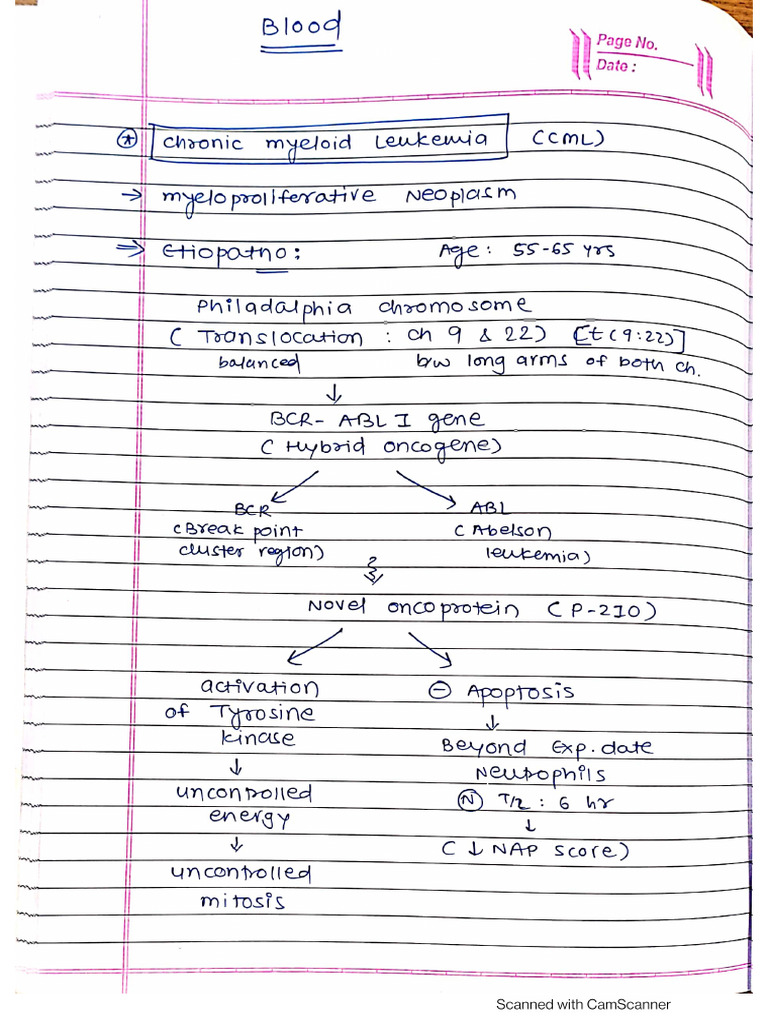 Blood
Page No.
Date :
⊛ Chronic myeloid Leukemia (CML)
→ myeloproliferative Neoplasm
⇒ Etiopatho: Age: 55-65 yrs
Philadalphia chromosome
( Translocation : ch 9 & 22) [t(9:22)]
balanced b/w long arms of both ch.
↓
BCR- ABL I gene
( Hybrid oncogene)
BCR ABL
(Break point ( Abelson
cluster region) leukemia)
Novel oncoprotein ( P-210)
activation ⊖ Apoptosis
of Tyrosine ↓
kinase Beyond Exp. date
↓ Neutrophils
uncontrolled Ⓝ T1/2 : 6 hr
energy ↓
↓ ( ↓ NAP score)
uncontrolled
mitosis
Scanned with CamScanner